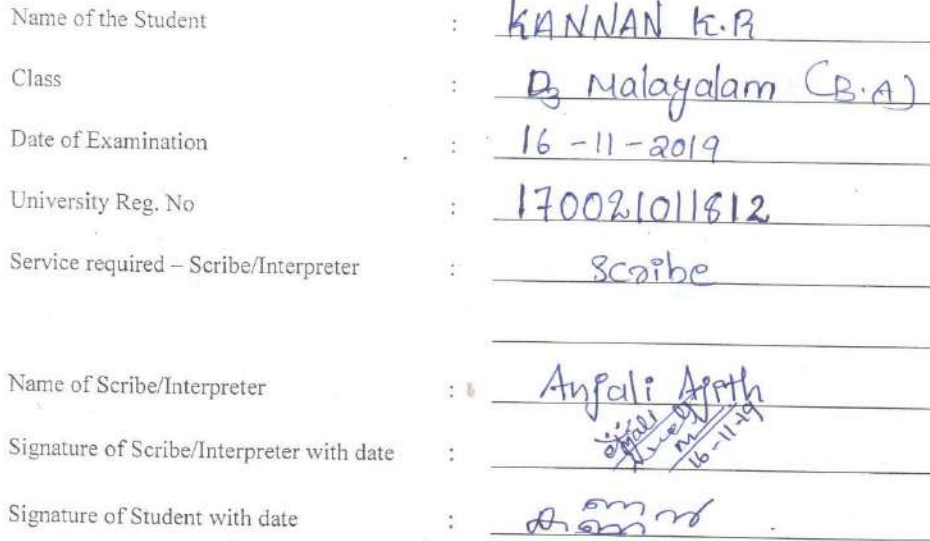 Name of the Student : KANNAN K.R
Class : D3 Malayalam (B.A)
Date of Examination : 16-11-2019
University Reg. No : 170021011812
Service required – Scribe/Interpreter : Scribe
Name of Scribe/Interpreter : Anjali Ajith
Signature of Scribe/Interpreter with date : 16-11-19
Signature of Student with date : കണ്ണൻ